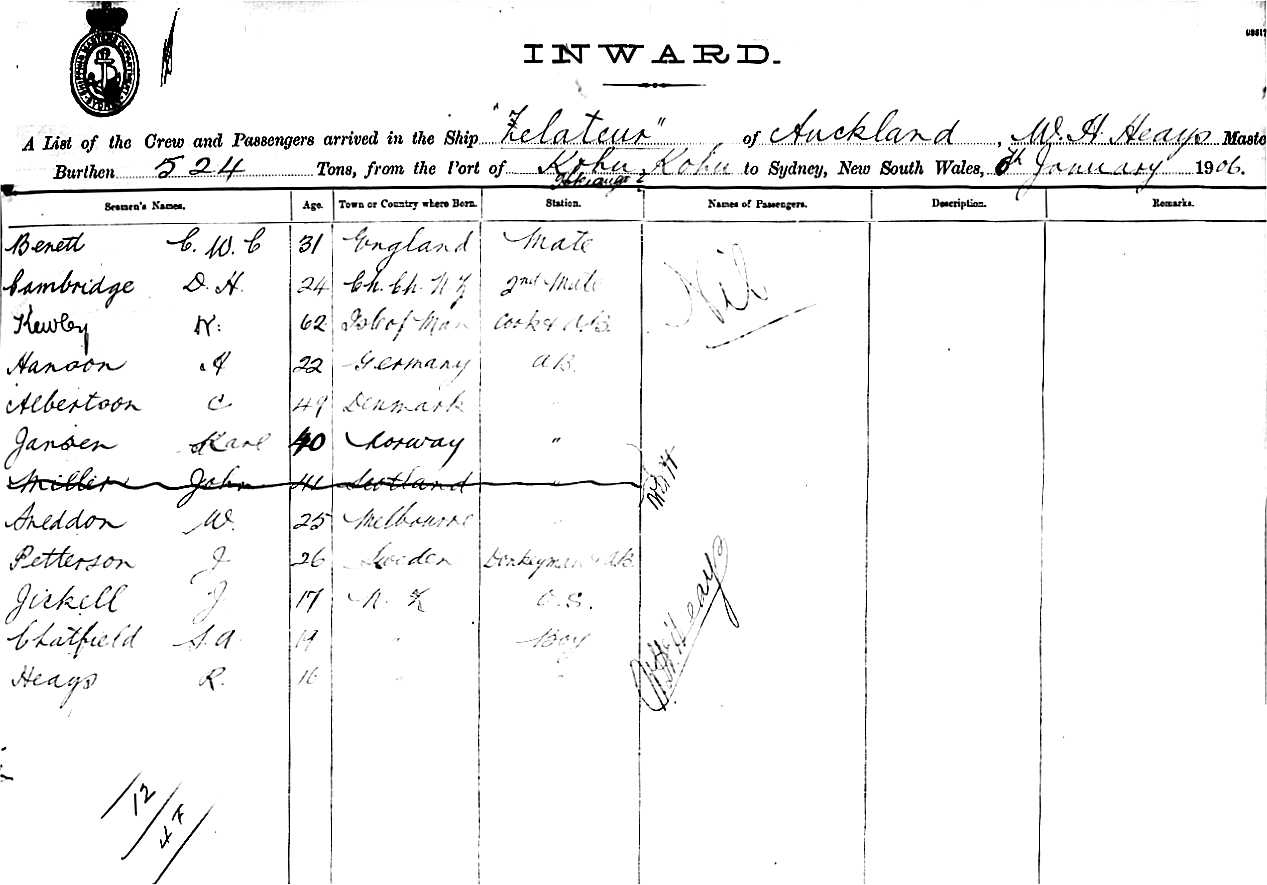 INWARD.
A List of the Crew and Passengers arrived in the Ship "Zelateur" of Auckland, W. H. Heays Maste
Burthen 524 Tons, from the Port of Kohu Kohu to Sydney, New South Wales, 6th January 1906.
Hokianga
Seamen's Names. Age. Town or Country where Born. Station. Names of Passengers. Description. Remarks.
Benett C. W. C 31 England Mate
Nil
Cambridge D. H. 24 Ch. Ch. N Z 2nd Mate
Kewley R. 62 Isle of Man Cook & A.B.
Hanson A 22 Germany A.B.
Albertson C 49 Denmark "
Jansen Karl 40 Norway "
Miller John 41 Scotland "
W H H
Sneddon W. 25 Melbourne "
Petterson J 26 Sweden Donkeyman & A.B.
Jickell J 17 N. Z O.S.
Chatfield S. A 19 " Boy
Heays R. 16 " "
W. H. Heays
12
4 F